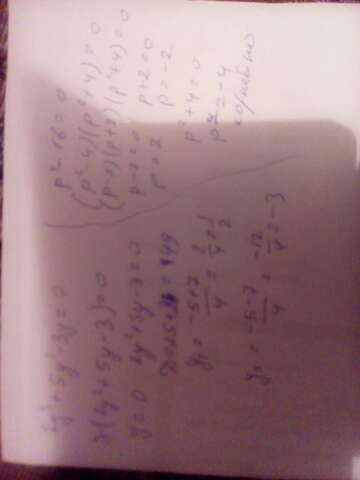 2y³+5y²-3y=0
y(2y²+5y-3)=0
y=0 2y²+5y-3=0
D=25+24=49
y₁ = (-5+7)/4 = 2/4 = 1/2
y₂ = (-5-7)/4 = -12/4 = -3
p⁴-16=0
(p²-4)(p²+4)=0
(p-2)(p+2)(p²+4)=0
p-2=0 p+2=0
p=2 p=-2
p²+4=0
p²=-4
корней нет